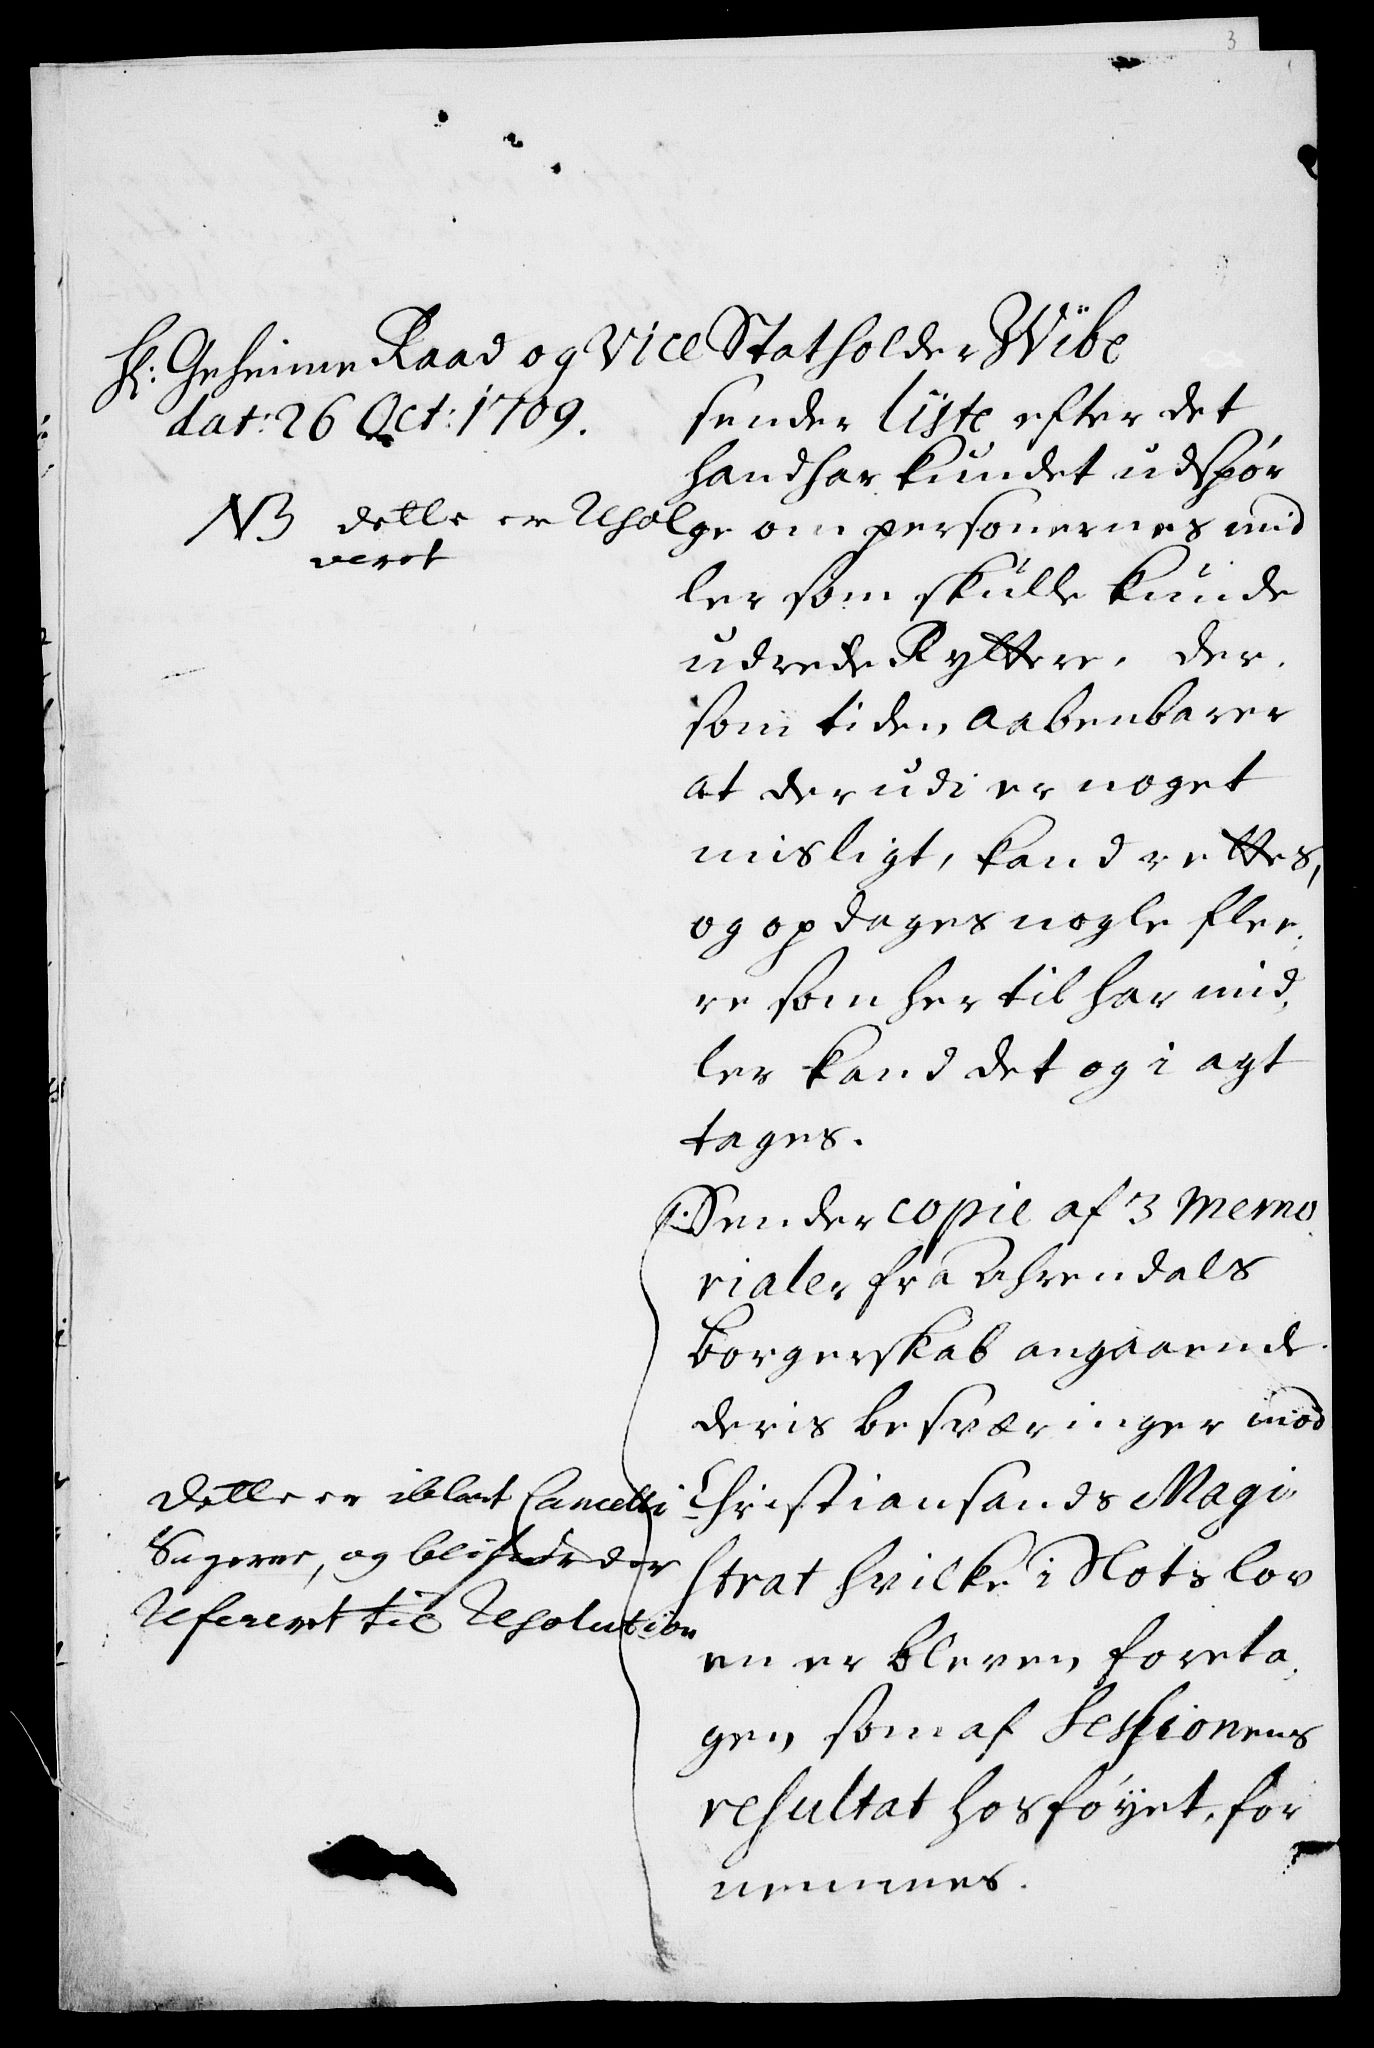 3
H: Geheime Raad og Vice Statholder Wibe
dat: 26 Oct: 1709.
sender liste efter det
hand har kundet udspør
NB dette er Resol
veret
ge om personernes mid
ler som skulle kunde
udrede Ryttere. der,
som tiden aabenbarer
at der udi er noget
misligt, kand rettes,
og opdages nogle flee,
re som her til har mid,
ler kand det og i agt
tages.
Sender copie af 3 Memo,
rialer fra Ahrendals
borgerskab angaaende
deris besværinger mod
Christiansands Magi,
strat hvilke i Slotslov
en er bleven foreta,
gen som af Sessionens
resultat hosføyet, for
nemmes.
Dette er iblant Cancelli
Sagerne, og blifver der
Refereret til Resolution